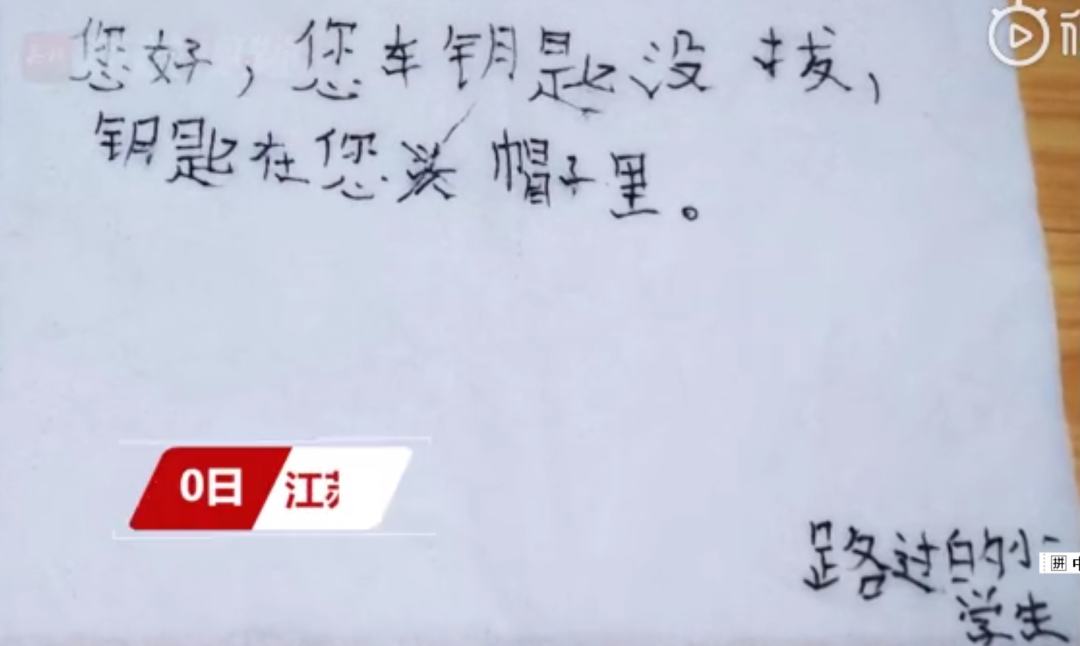 您好，您车钥匙没拔，
钥匙在您头帽子里。
0日 江苏
路过的小
学生
拼 中